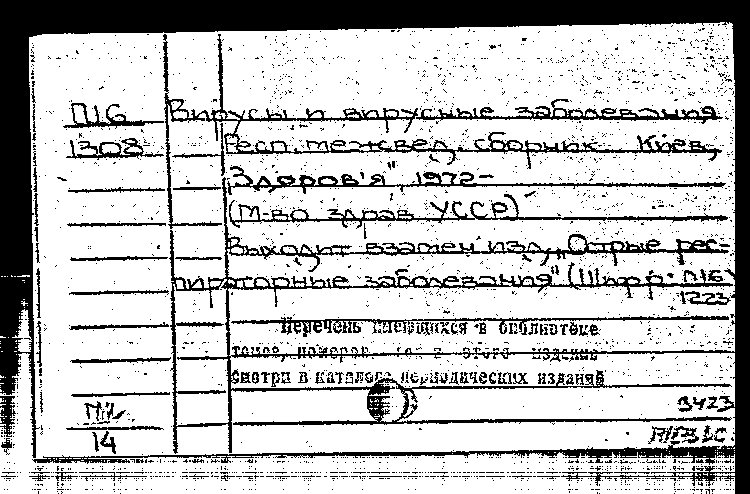 П16 Вирусы и вирусные заболевания
1308 Респ. межвед. сборник. Киев,
"Здоров'я", 1972-
(М-во здрав. УССР)
Выходит взамен изд. "Острые рес-
пираторные заболевания" (Шифр: П16
1223
Перечень имеющихся в библиотеке
томов, номеров этого издания
смотри в каталоге периодических изданий
3423
14